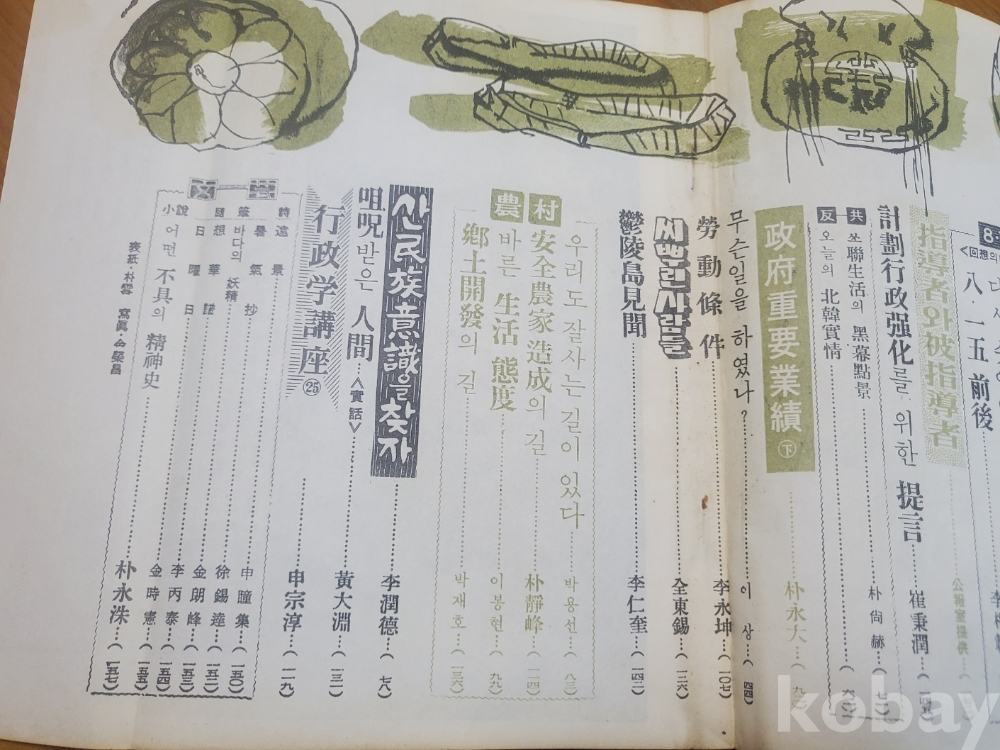 八·一五 前後
指導者와 被指導者
公報室提供
計劃行政强化를 위한 提言 崔秉潤
共 쏘聯生活의 黑幕點景 朴尙赫
反 오늘의 北韓實情
政府重要業績 下 朴永大
무슨일을 하였나? 이상 (四四)
勞動條件 李永坤 (一〇七)
씨뿌린사람들 全東錫 (一三六)
鬱陵島見聞 李仁奎 (一四二)
農村
우리도 잘사는 길이 있다 박용선 (八三)
安全農家 造成의 길 朴靜峰 (一一四)
바른 生活 態度 이봉현 (九九)
鄕土開發의 길 박재호 (一三六)
산民族意識을 찾자 李潤德 (七八)
咀呪받은 人間 <實話> 黃大淵 (一三二)
行政学講座 ㉕ 申宗淳 (一一九)
文 藝
詩 遠景 申瞳集 (一五〇)
暑氣抄 徐錫達 (一五二)
바다의 妖精 金朗峰 (一五三)
想華 日諸 李丙泰 (一五四)
日曜日 金時憲 (一五五)
小說 어떤 不具의 精神史 朴永洙 (一五七)
表紙·朴雲 寫眞·金榮昌
kobay